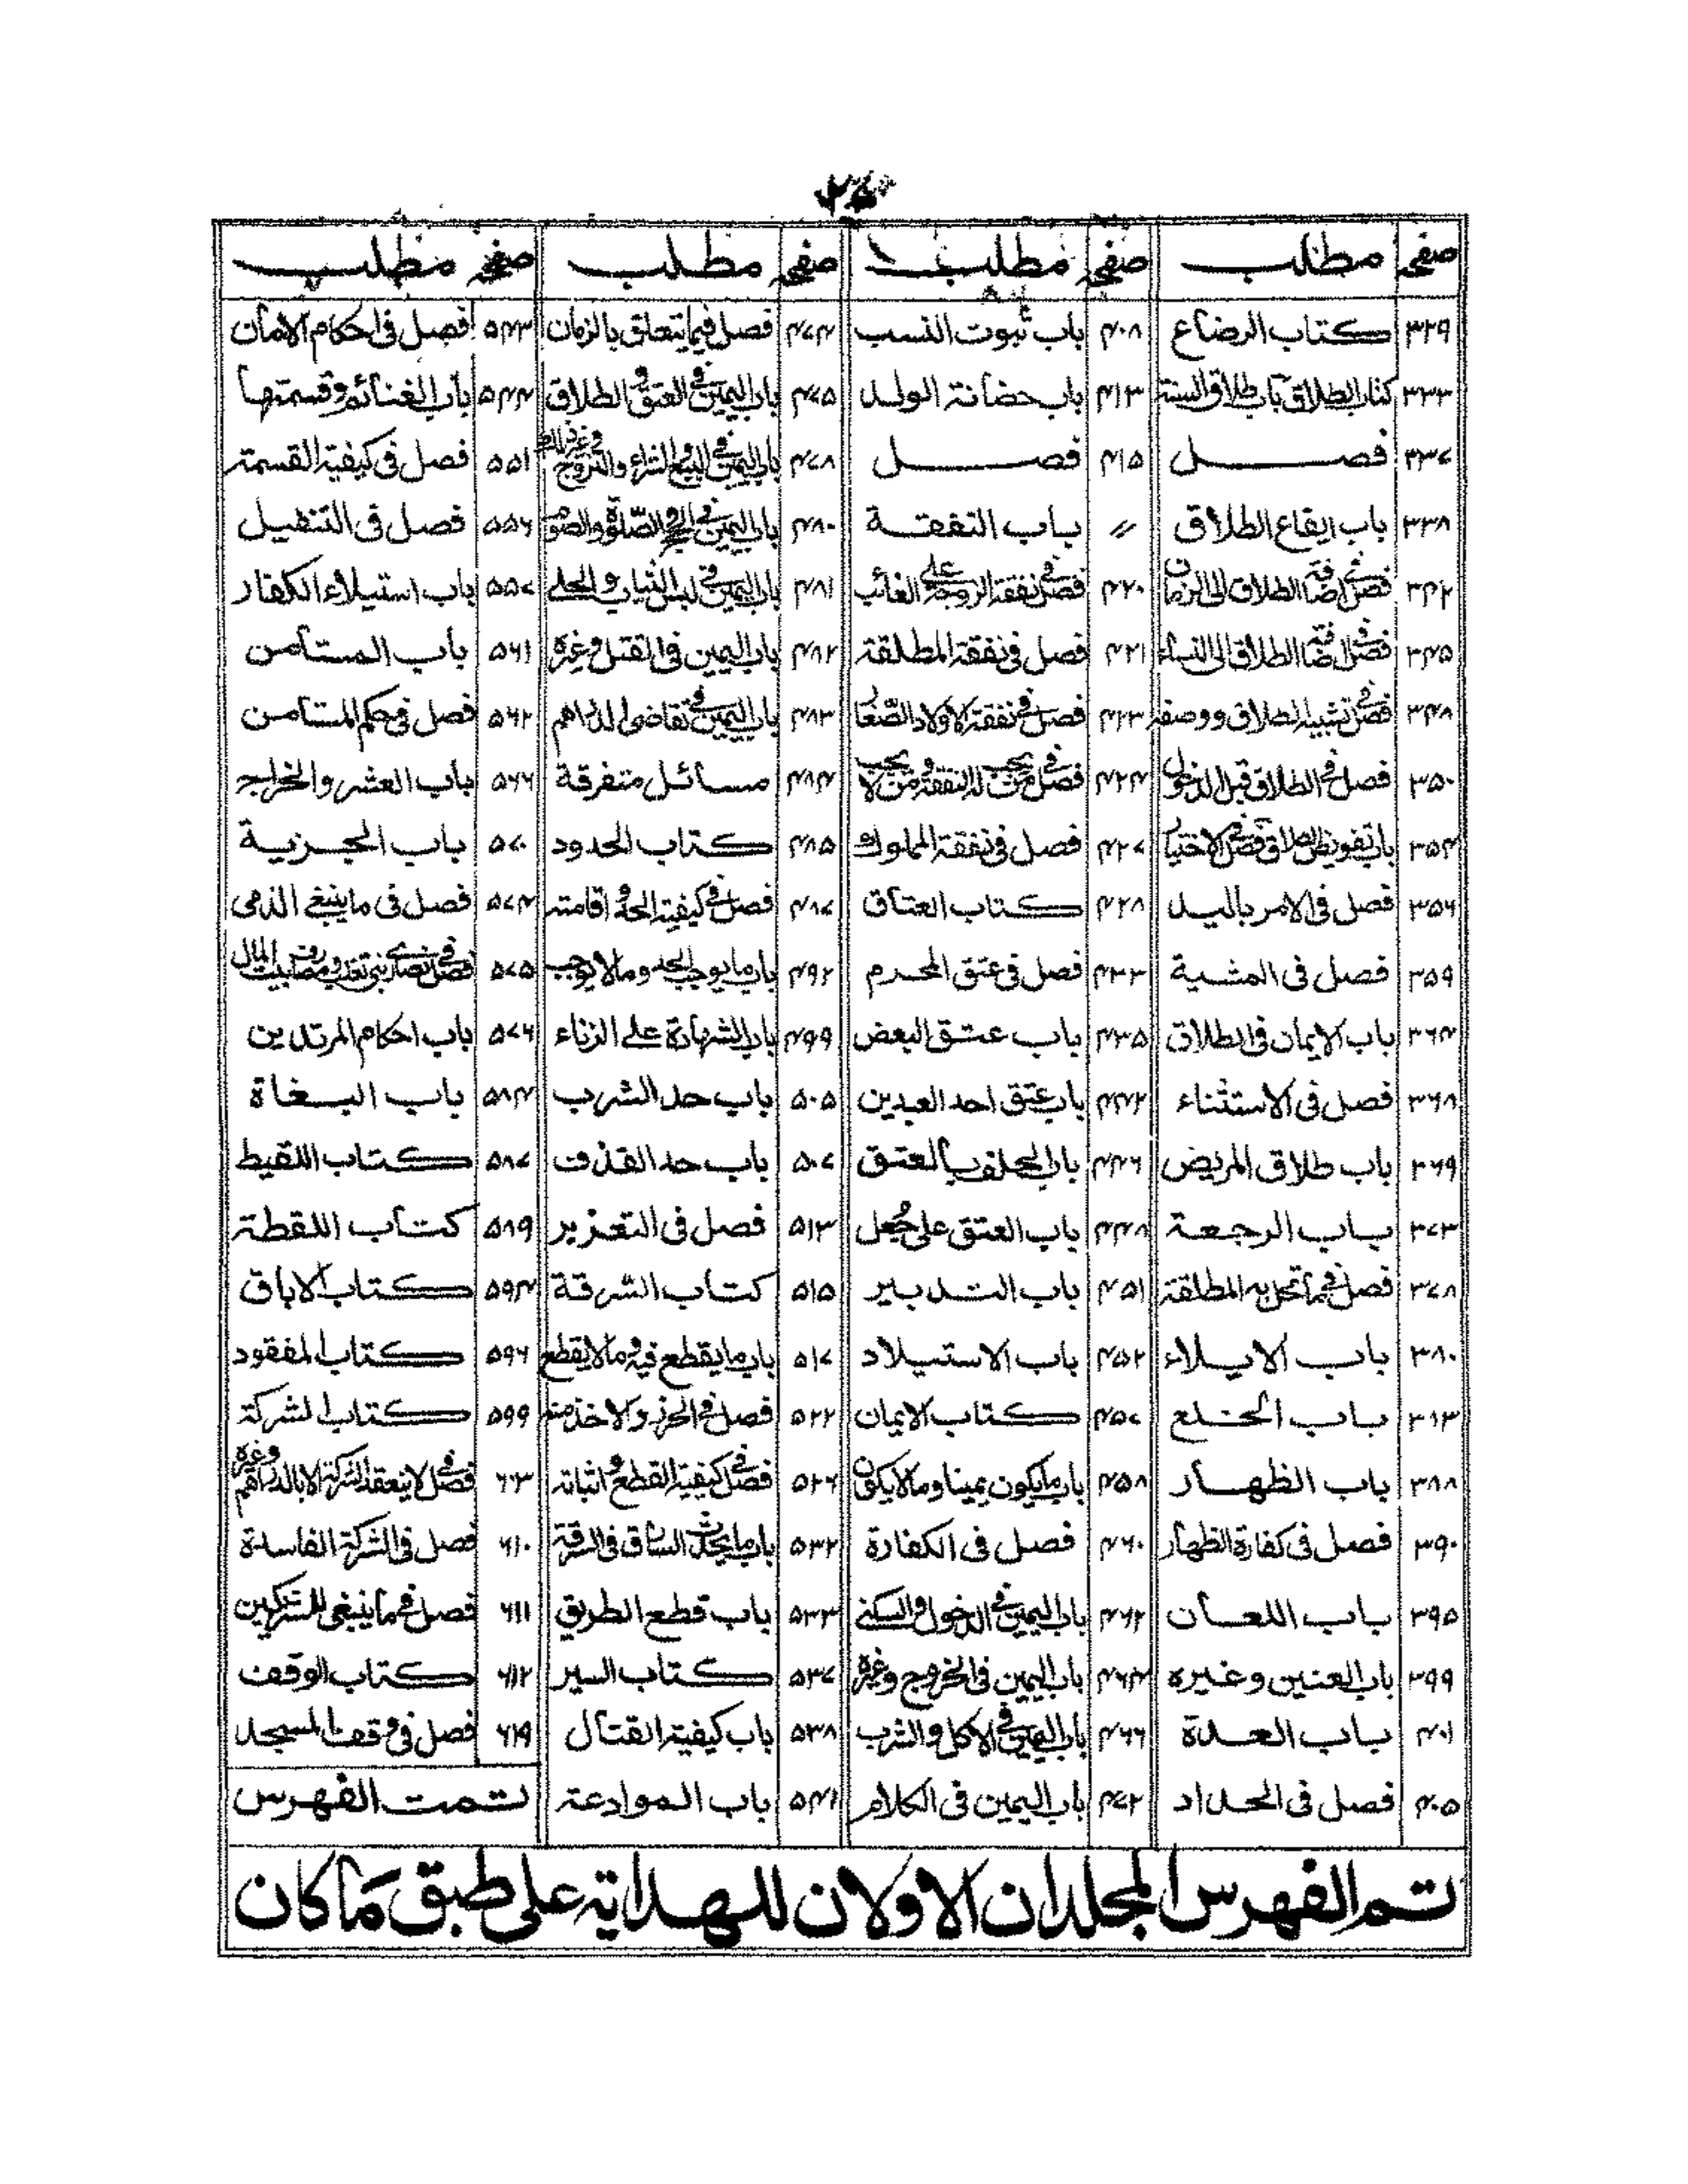 صفحہ مطلب صفحہ مطلب صفحہ مطلب صفحہ مطلب
۳۲۹ کتاب الرضاع ۴۰۸ باب ثبوت النسب ۴۷۴ فصل فیما یتعلق بالزمان ۵۴۳ فصل فی احکام الامان
۳۳۳ کتاب الطلاق باب طلاق السنۃ ۴۱۳ باب حضانۃ الولد ۴۷۵ باب الیمین فی العتق والطلاق ۵۴۴ باب الغنائم وقسمتها
۳۳۷ فصل ۴۱۵ فصل ۴۷۸ باب الیمین فی البیع والشراء والتزوج وغیر ذلک ۵۵۱ فصل فی کیفیۃ القسمۃ
۳۳۸ باب ایقاع الطلاق // باب النفقة ۴۸۰ باب الیمین فی الحج والصلوۃ والصوم ۵۵۶ فصل فی التنفیل
۳۴۲ فصل فی اضافۃ الطلاق الی الزمان ۴۲۰ فصل فی نفقۃ الزوجۃ علی الغائب ۴۸۱ باب الیمین فی لبس الثیاب والحلی ۵۵۷ باب استیلاء الکفار
۳۴۵ فصل فی اضافۃ الطلاق الی النساء ۴۲۱ فصل فی نفقۃ المطلقۃ ۴۸۲ باب الیمین فی القتل وغیرہ ۵۶۱ باب المستأمن
۳۴۸ فصل فی تشبیہ الطلاق ووصفہ ۴۲۳ فصل فی نفقۃ الاولاد الصغار ۴۸۳ باب الیمین فی تقاضی الدراهم ۵۶۲ فصل فی حکم المستأمن
۳۵۰ فصل فی الطلاق قبل الدخول ۴۲۴ فصل فی من یجب لہ النفقۃ ومن لا یجب ۴۸۴ مسائل متفرقة ۵۶۶ باب العشر والخراج
۳۵۴ باب تفویض الطلاق فصل فی الاختیار ۴۲۷ فصل فی نفقۃ المملوک ۴۸۵ کتاب الحدود ۵۷۰ باب الجزیة
۳۵۶ فصل فی الامر بالید ۴۲۸ کتاب العتاق ۴۸۷ فصل فی کیفیۃ الحد واقامتہ ۵۷۴ فصل فی ما ینبغی الذمی
۳۵۹ فصل فی المشیة ۴۳۳ فصل فی عتق المحرم ۴۹۲ باب ما یوجب الحد وما لا یوجب ۵۷۵ فصل فی نصاری بنی تغلب ومصارف بیت المال
۳۶۴ باب الایمان فی الطلاق ۴۳۵ باب عتق البعض ۴۹۹ باب الشهادة علی الزناء ۵۷۶ باب احکام المرتدین
۳۶۸ فصل فی الاستثناء ۴۴۲ باب عتق احد العبدین ۵۰۵ باب حد الشرب ۵۸۴ باب البغاة
۳۶۹ باب طلاق المریض ۴۴۶ باب الحلف بالعتق ۵۰۷ باب حد القذف ۵۸۷ کتاب اللقیط
۳۷۳ باب الرجعة ۴۴۸ باب العتق علی جُعل ۵۱۳ فصل فی التعزیر ۵۸۹ کتاب اللقطۃ
۳۷۸ فصل فیما تحل بہ المطلقۃ ۴۵۱ باب التدبیر ۵۱۵ کتاب السرقة ۵۹۴ کتاب الاباق
۳۸۰ باب الایلاء ۴۵۲ باب الاستیلاد ۵۱۷ باب ما یقطع فیہ وما لا یقطع ۵۹۶ کتاب المفقود
۳۸۳ باب الخلع ۴۵۷ کتاب الایمان ۵۲۲ فصل فی الحرز والاخذ منہ ۵۹۹ کتاب الشرکۃ
۳۸۸ باب الظهار ۴۵۸ باب ما یکون یمینا وما لا یکون ۵۲۶ فصل فی کیفیۃ القطع واثباتہ ۶۰۳ فصل فی لا ینعقد الشرکۃ الا بالدراهم وغیرہ
۳۹۰ فصل فی کفارۃ الظهار ۴۶۰ فصل فی الکفارة ۵۳۲ باب ما یحدث السارق فی السرقۃ ۶۱۰ فصل فی الشرکۃ الفاسدة
۳۹۵ باب اللعان ۴۶۲ باب الیمین فی الدخول والسکنی ۵۳۳ باب قطع الطریق ۶۱۱ فصل فیما ینبغی للشریکین
۳۹۹ باب العنین وغیرہ ۴۶۴ باب الیمین فی الخروج وغیرہ ۵۳۷ کتاب السیر ۶۱۲ کتاب الوقف
۴۰۱ باب العدة ۴۶۶ باب الیمین فی الاکل والشرب ۵۳۸ باب کیفیۃ القتال ۶۱۹ فصل فی وقف المسجد
۴۰۵ فصل فی الحداد ۴۷۲ باب الیمین فی الکلام ۵۴۱ باب الموادعۃ تمت الفهرس
تم الفهرس المجلدان الاولان للهدایۃ علی طبق ما کان